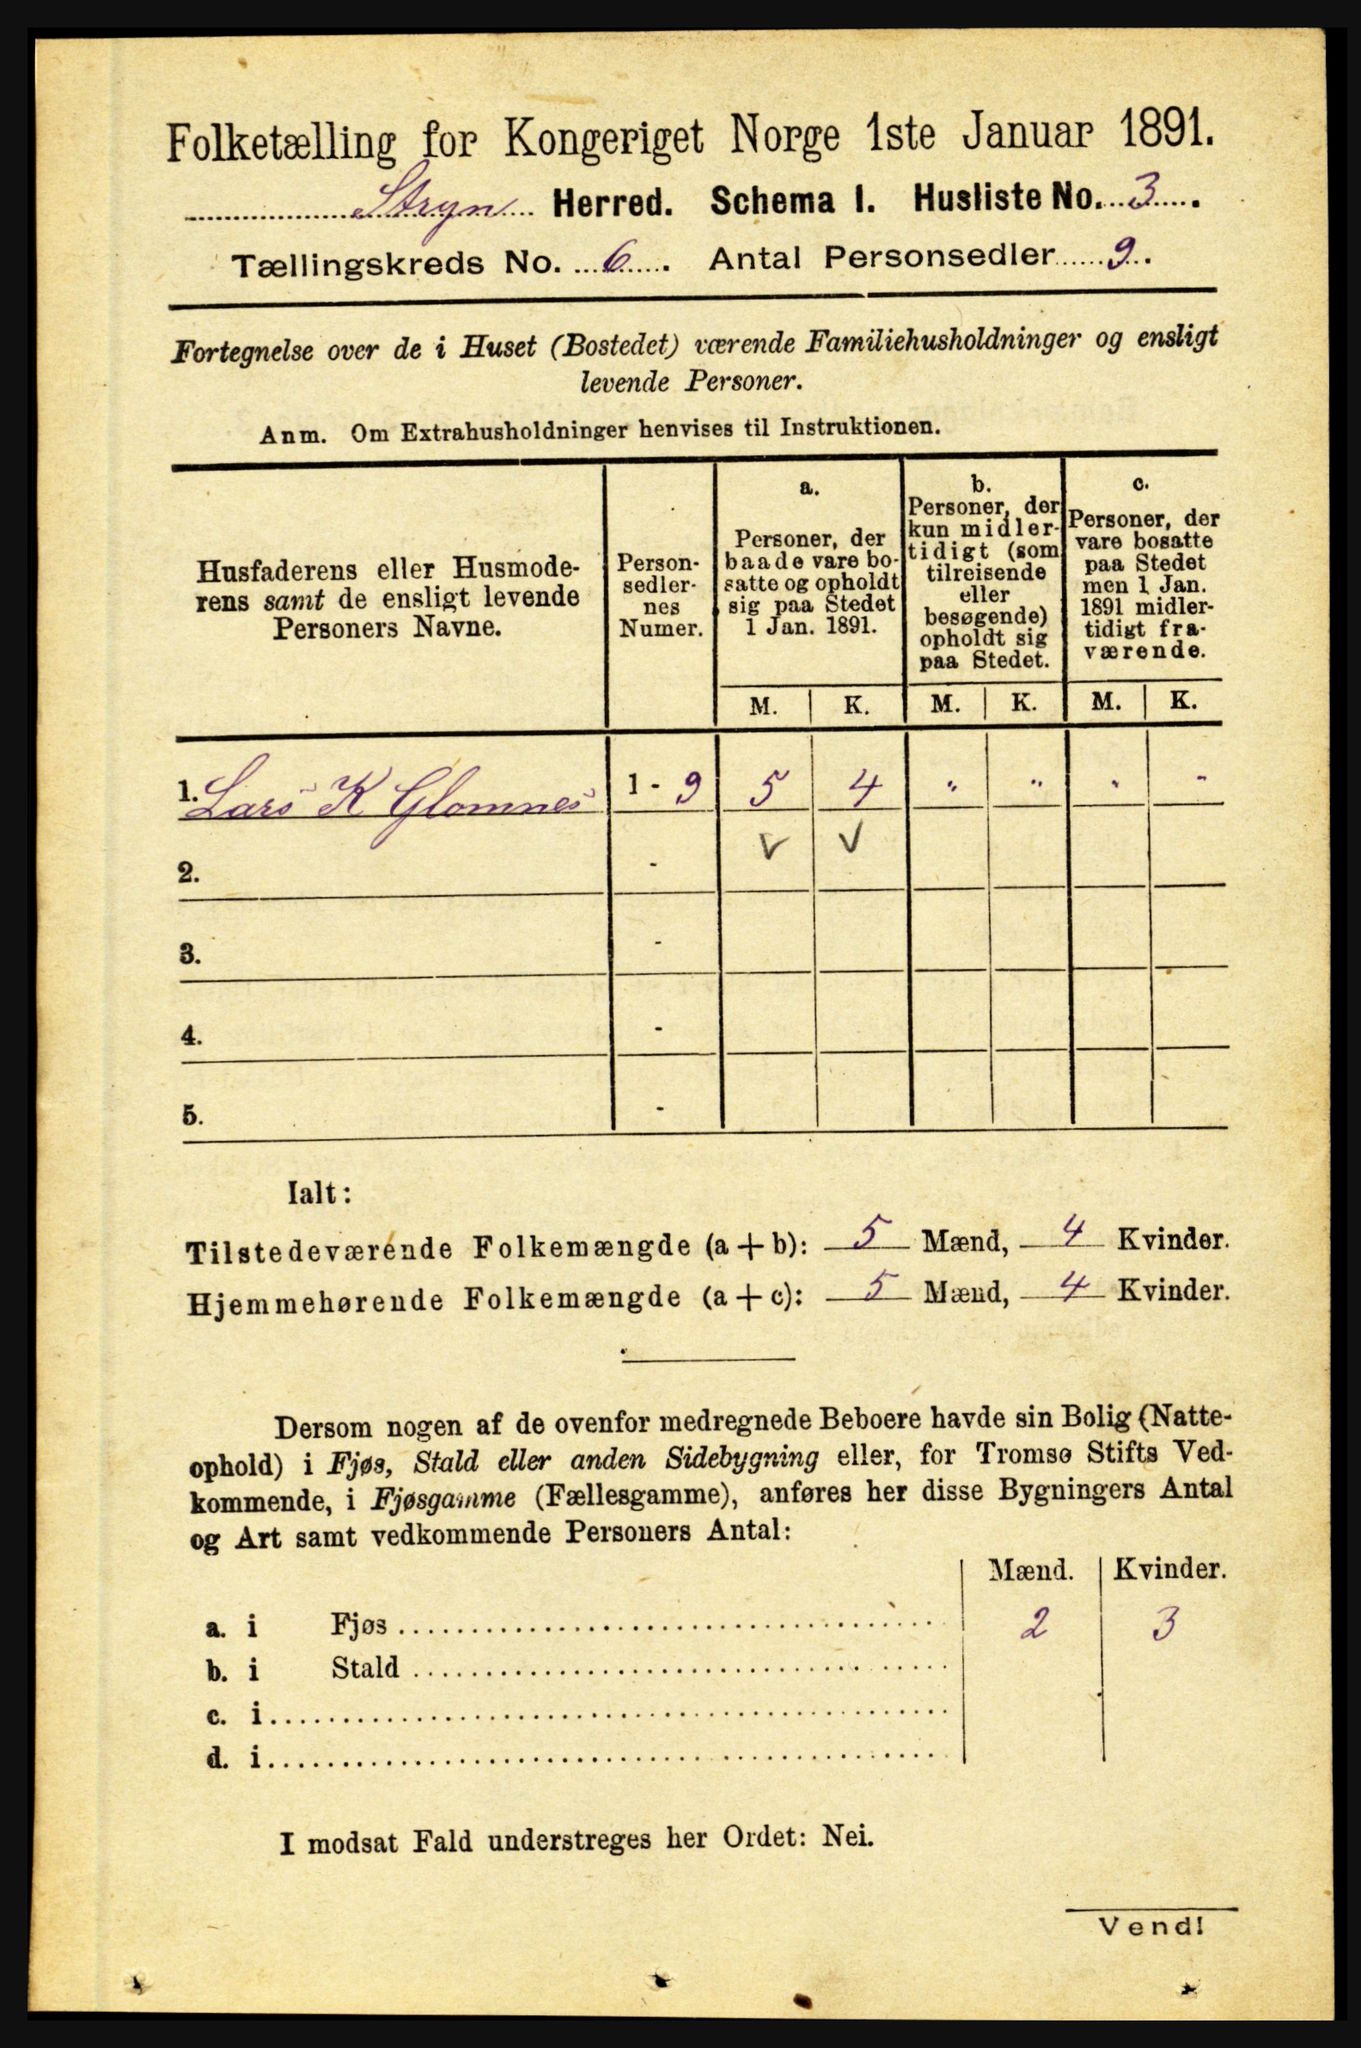 Folketælling for Kongeriget Norge 1ste Januar 1891.
Stryn Herred. Schema I. Husliste No. 3.
Tællingskreds No. 6. Antal Personsedler 9.
Fortegnelse over de i Huset (Bostedet) værende Familiehusholdninger og ensligt
levende Personer.
Anm. Om Extrahusholdninger henvises til Instruktionen.
Husfaderens eller Husmode-
rens samt de ensligt levende
Personers Navne.
Person-
sedler-
nes
Numer.
a.
Personer, der
baade vare bo-
satte og opholdt
sig paa Stedet
1 Jan. 1891.
b.
Personer, der
kun midler-
tidigt (som
tilreisende
eller
besøgende)
opholdt sig
paa Stedet.
c.
Personer, der
vare bosatte
paa Stedet
men 1 Jan.
1891 midler-
tidigt fra-
værende.
M. K. M. K. M. K.
1. Lars K Glomnes 1 - 9 5 4 " " " "
2. - v v
3. -
4. -
5. -
Ialt:
Tilstedeværende Folkemængde (a + b): 5 Mænd, 4 Kvinder.
Hjemmehørende Folkemængde (a + c): 5 Mænd, 4 Kvinder.
Dersom nogen af de ovenfor medregnede Beboere havde sin Bolig (Natte-
ophold) i Fjøs, Stald eller anden Sidebygning eller, for Tromsø Stifts Ved-
kommende, i Fjøsgamme (Fællesgamme), anføres her disse Bygningers Antal
og Art samt vedkommende Personers Antal:
Mænd. Kvinder.
a. i Fjøs 2 3
b. i Stald
c. i
d. i
I modsat Fald understreges her Ordet: Nei.
Vend!